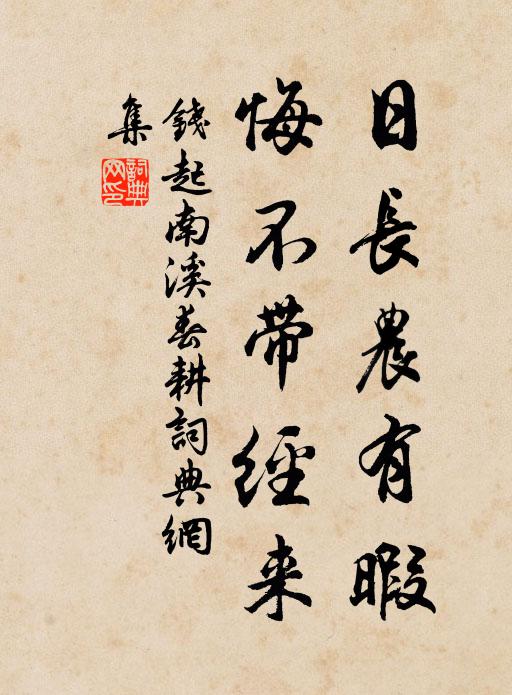 日長農有暇
悔不帶經来
錢起南溪春耕詞典網
集
詞典
网印